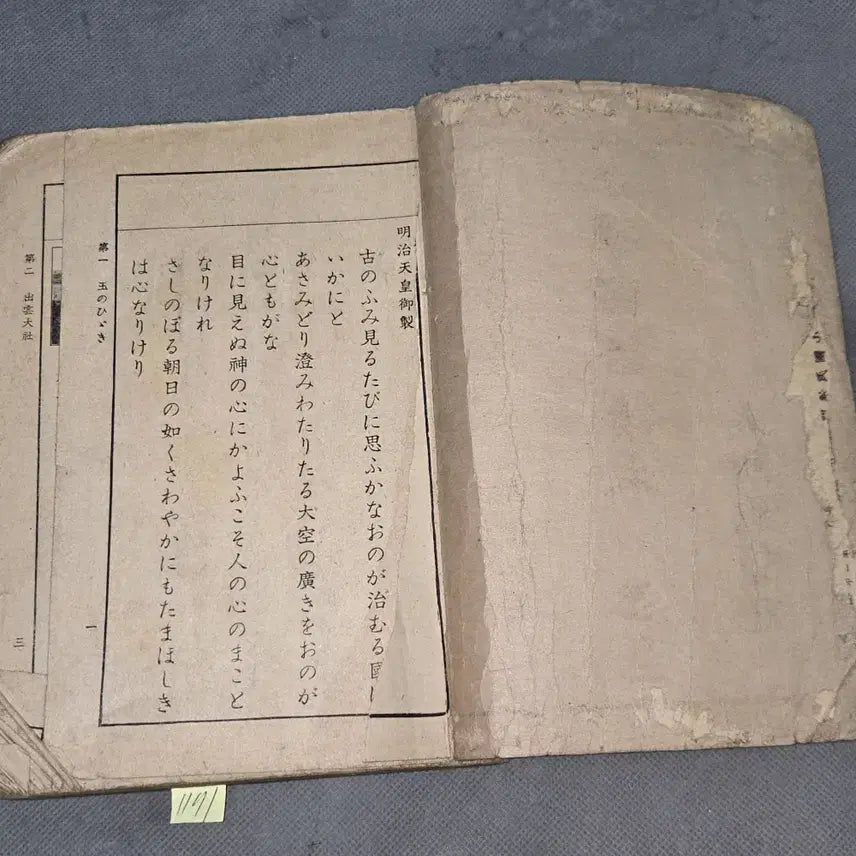 明治天皇御製
古のふみ見るたびに思ふかなおのが治むる国
いかにと
あさみどり澄みわたりたる大空の廣きをおのが
心ともがな
目に見えぬ神の心にかよふこそ人の心のまこと
なりけれ
さしのぼる朝日の如くさわやかにもたまほしき
は心なりけり
第一 玉のひゞき
一
第二 出雲大社
三
1191